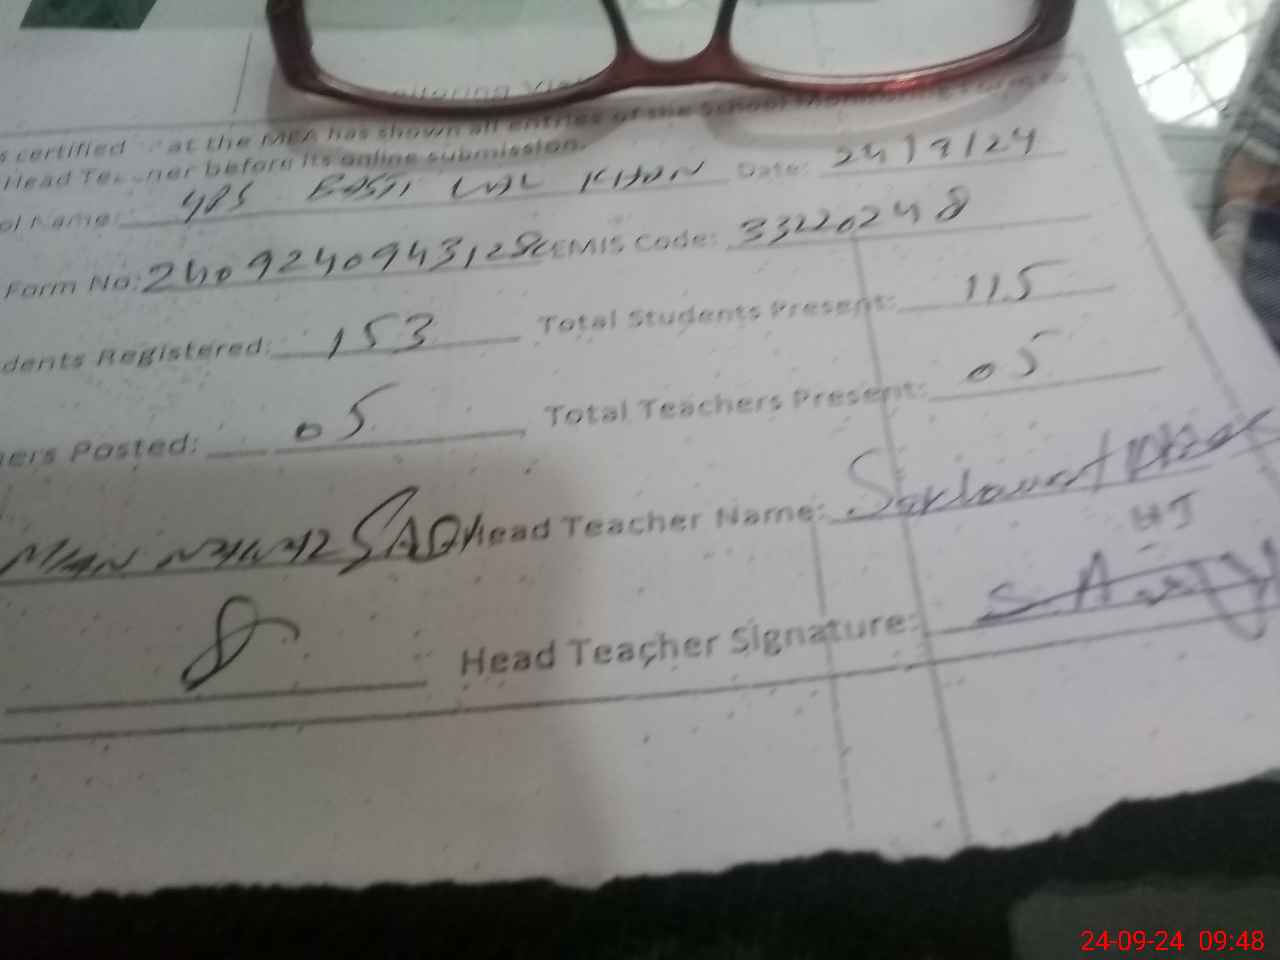 itoring Vis
s certified at the MEA has shown all entries of the School Monitoring
Head Teacher before its online submission.
ol Name: GPS BASTI LAL KHAN Date: 24/9/24
Form No: EMIS Code: 33220248
dents Registered: 153 Total Students Present: 115
ers Posted: 05 Total Teachers Present: 05
MIAN NAWAZ SAQI Head Teacher Name:
Head Teacher Signature:
24-09-24 09:48